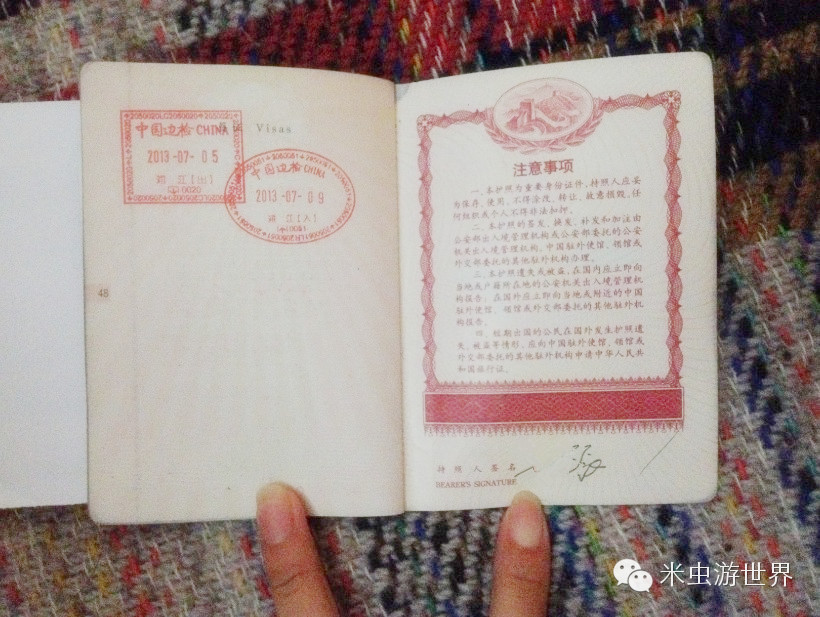 中国边检 CHINA
Visas
2013-07-05
[出]
中国边检 CHINA
2013-07-09
[入]
48
注意事项
一、本护照为重要身份证件，持照人应妥
为保存、使用，不得涂改、转让、故意损毁，任
何组织或个人不得非法扣押。
二、本护照的签发、换发、补发和加注由
公安部出入境管理机构或公安部委托的公安
机关出入境管理机构、中国驻外使馆、领馆或
外交部委托的其他驻外机构办理。
三、本护照遗失或被盗，在国内应立即向
当地或户籍所在地的公安机关出入境管理机
构报告；在国外应立即向当地或附近的中国
驻外使馆、领馆或外交部委托的其他驻外机
构报告。
四、短期出国的公民在国外发生护照遗
失、被盗等情形，应向中国驻外使馆、领馆或
外交部委托的其他驻外机构申请中华人民共
和国旅行证。
持照人签名
BEARER'S SIGNATURE
米虫游世界